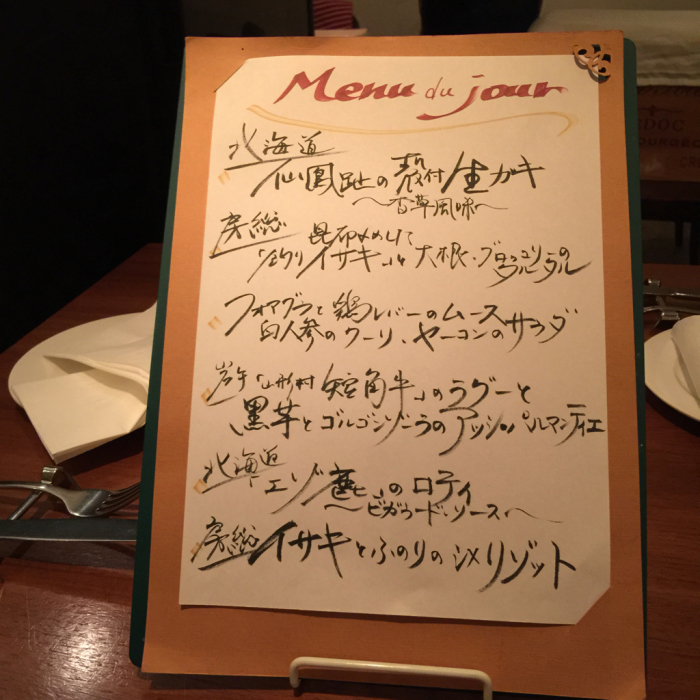 Menu du jour
北海道
仙鳳趾の殻付生ガキ
～香草風味～
房総 昆布〆めして
「釣りイサキ」と大根・ブロッコリーの
フォアグラと鶏レバーのムース
白人参のクーリ、ヤーコンのサラダ
岩手「山形村短角牛」のラグーと
黒芋とゴルゴンゾーラのアッシ・パルマンティエ
北海道
「エゾ鹿」のロティ
～ビガラード・ソース～
房総 イサキとふのりの〆リゾット
DOC